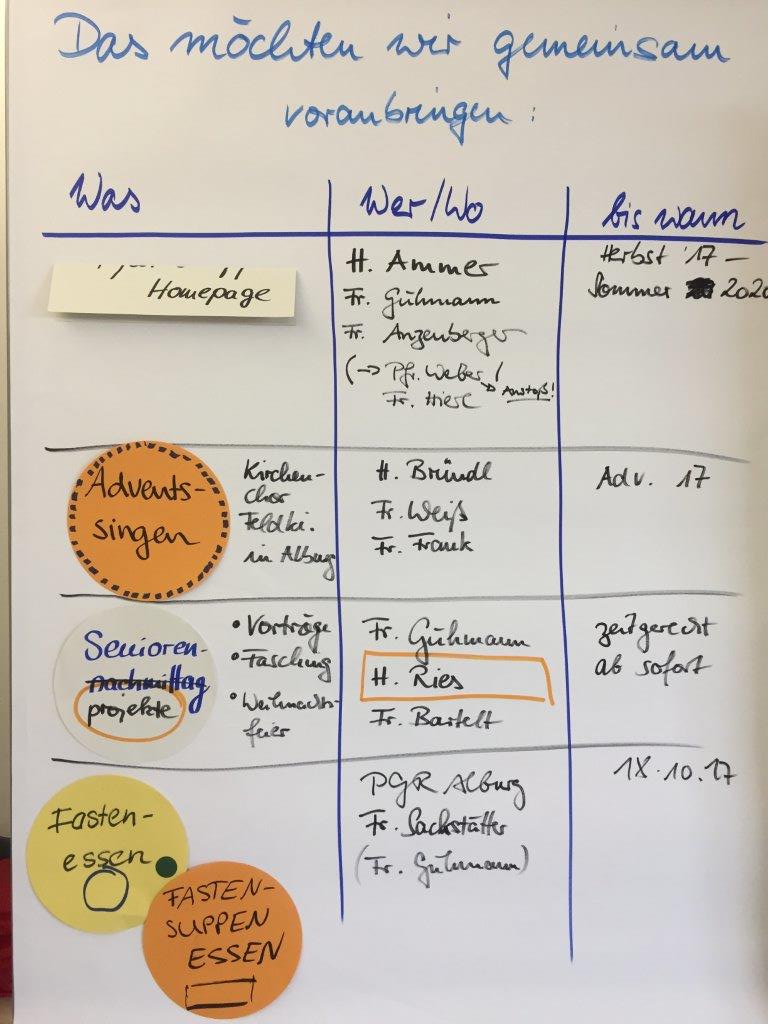 Das möchten wir gemeinsam
voranbringen:
Was
Wer/Wo
bis wann
Homepage
H. Ammer
Fr. Gühmann
Fr. Anzenberger
(→ Pfr. Weber /
Fr. Hierl
→ Anstoß!
Herbst '17 –
Sommer 2020
Advents-
singen
Kirchen-
chor
Feldki.
in Alburg
H. Bründl
Fr. Weiß
Fr. Frank
Adv. 17
Senioren-
nachmittag
projekte
• Vorträge
• Fasching
• Weihnachts-
feier
Fr. Gühmann
H. Ries
Fr. Bartelt
zeitgerecht
ab sofort
Fasten-
essen
FASTEN-
SUPPEN
ESSEN
PGR Alburg
Fr. Sackstätter
(Fr. Gühmann)
18.10.17